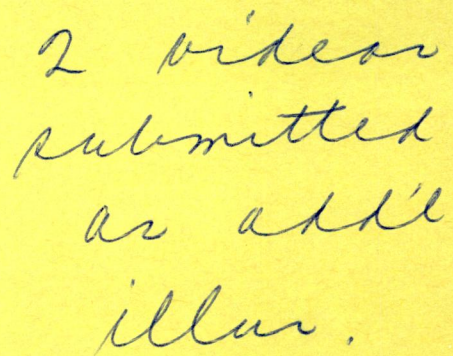 2 videos
submitted
as add'l
illus.